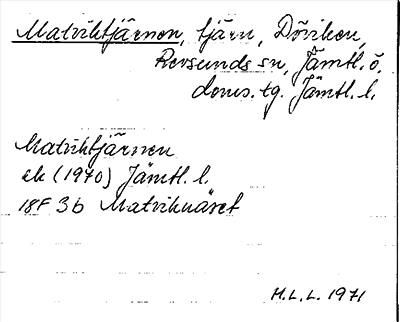 Matviktjärnen, tjärn, Döviken,
Revsunds sn, Jämtl. ö.
doms. tg. Jämtl. l.
Matviktjärnen
ek (1970) Jämtl. l.
18F 3b Matviknäset
M.L.L. 1971